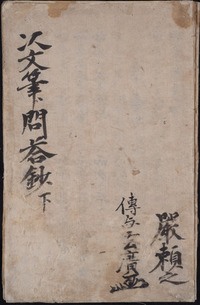 次文筆問答鈔下
嚴頼之
傳